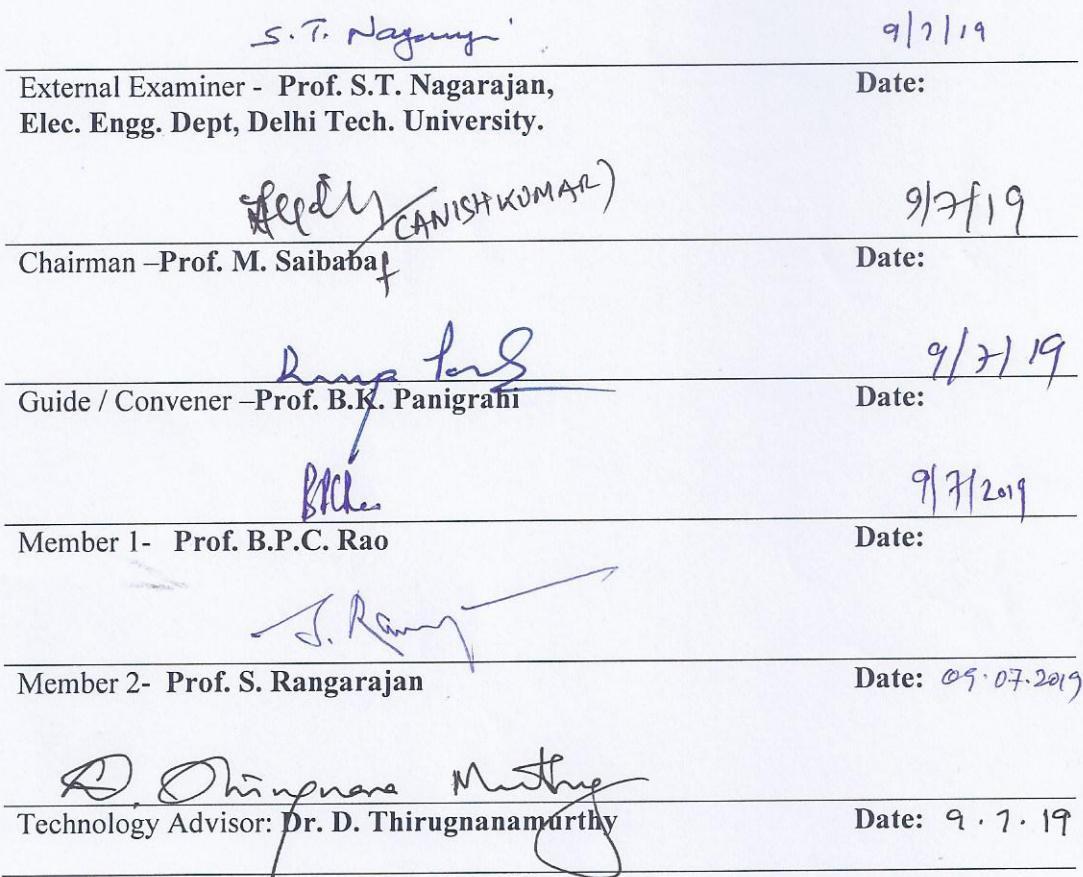 S.T. Nagarajan 9/7/19
External Examiner - Prof. S.T. Nagarajan, Date:
Elec. Engg. Dept, Delhi Tech. University.
(ANISH KUMAR) 9/7/19
Chairman –Prof. M. Saibaba Date:
9/7/19
Guide / Convener –Prof. B.K. Panigrahi Date:
9/7/2019
Member 1- Prof. B.P.C. Rao Date:
Member 2- Prof. S. Rangarajan Date: 09.07.2019
Technology Advisor: Dr. D. Thirugnanamurthy Date: 9.7.19